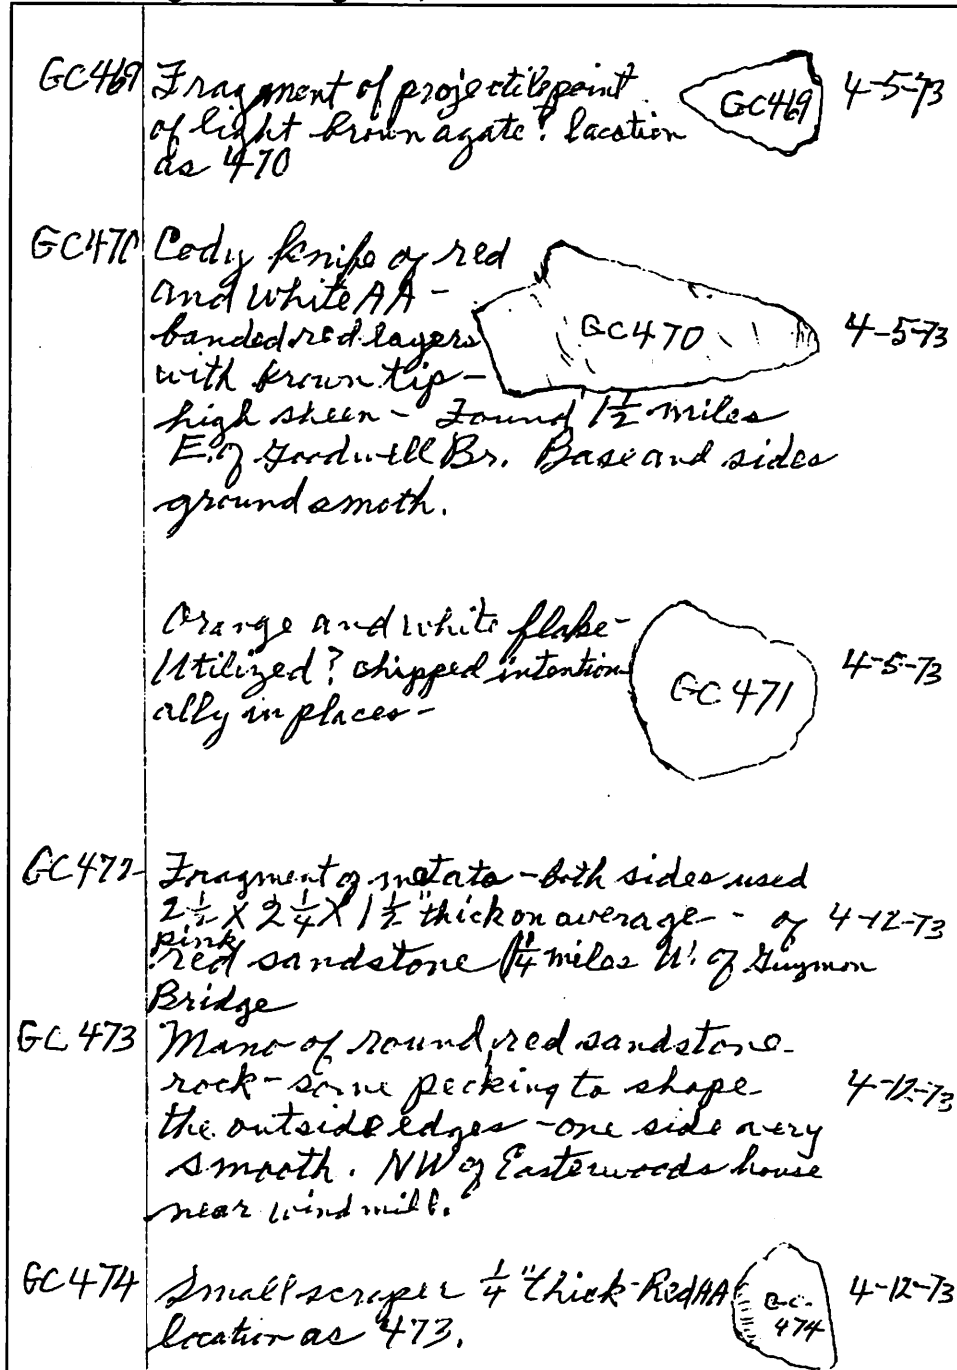 GC469 Fragment of projectile point GC469 4-5-73
of light brown agate? location
as 470
GC470 Cody knife of red
and white AA-
banded red layers GC470 4-5-73
with brown tip-
high sheen- Found 1½ miles
E. of Goodwell Br. Base and sides
ground smoth.
Orange and white flake-
Utilized? chipped intention- GC 471 4-5-73
ally in places-
GC472- Fragment of metate-both sides used
2½ X 2¼ X 1½" thick on average- of 4-12-73
pink
red sandstone 1¼ miles W. of Guymon
Bridge
GC 473 Mano of round, red sandstone
rock-some pecking to shape 4-12-73
the outside edges-one side very
smooth. NW of Easterwoods house
near windmill.
GC474 Small scraper ¼" thick-Red AA G.C. 474 4-12-73
location as 473.